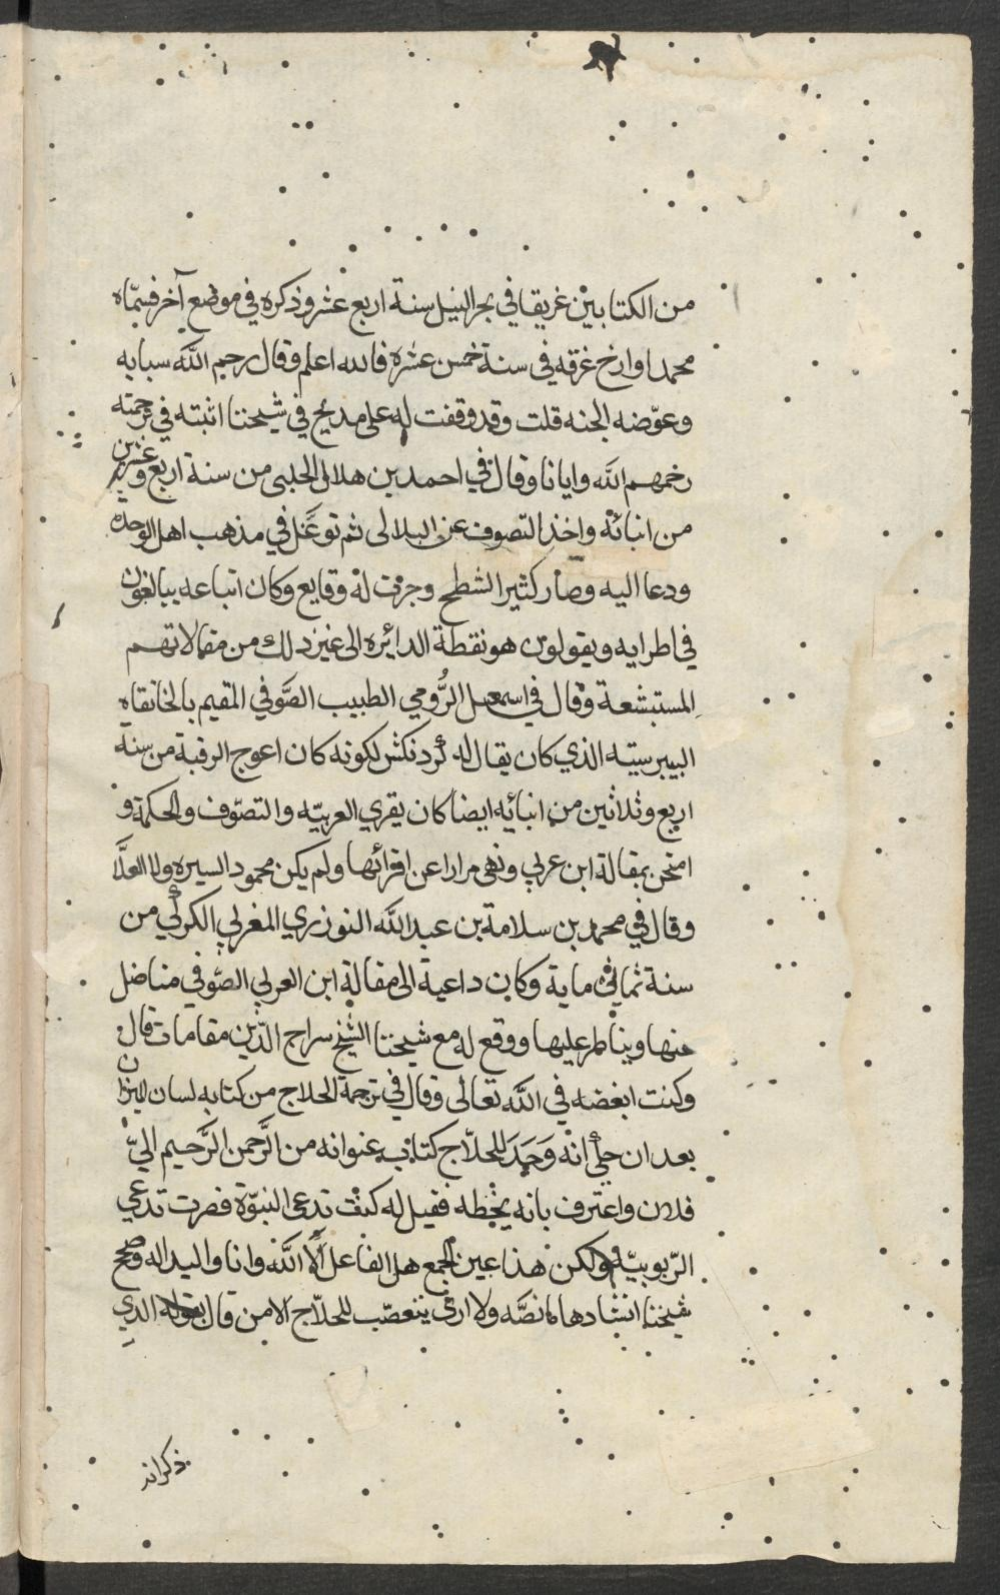 من الكتابين غريقا في بحر النيل سنة اربع عشر وذكره في موضع آخر فسمّاه
محمد اوارخ غرقه في سنة خمس عشرة فالله اعلم وقال رحيم الله سبابه
وعوّضه الجنه قلت وقد وقفت له على مديح في شيخنا اثبته في ترجمته
رحمهم الله وايانا وقال في احمد بن هلال الحلبى من سنة اربع وعشرين
من انبائه واخذ التصوف عن البلالى ثم توغّل في مذهب اهل الوحدة
ودعا اليه وصار كثير الشطح وجرت له وقايع وكان اتباعه يبالغون
في اطرايه ويقولون هو نقطة الدائره الى غير ذلك من مقالاتهم
المستبشعة وقال في اسمعيل الرُّومي الطبيب الصَّوفي المقيم بالخانقاه
البيبرسيته الذي كان يقال له كُردنكش لكونه كان اعوج الرقبة من سنة
اربع وثلاثين من انبائه ايضا كان يقري العربيّه والتصوّف والحكمة و
امتحن بمقالة ابن عربي ونهى مرارا عن اقرائها ولم يكن محمود السيره ولا العلَّا
وقال في محمد بن سلامة بن عبد الله النوزري المغربي الكركُي من
سنة ثماني ماية وكان داعية الى مقالة ابن العربي الصَّوفي مناضل
عنها ويناظر عليها ووقع له مع شيخنا الشيخ سراج الدّين مقامات قال
وكنت ابغضه في الله تعالى وقال في ترجمة الحلاج من كتابه لسان الميزان
بعد ان حكي انه وَجَدَ للحلّاج كتاب عنوانه من الرَّحمن الرَّحيم الى
فلان واعترف بانه يخطه فقيل له كنت تدعى النبوّة فصرت تدعي
الرّبوبيّة ولكن هذا عين الجمع هل الفاعل الّا الله وانا واليد اله وصحح
شيخنا اسنادها ما نصَّه ولا ارى يتعصّب للحلّاج الا من قال بقوله الذي
ذكر انه